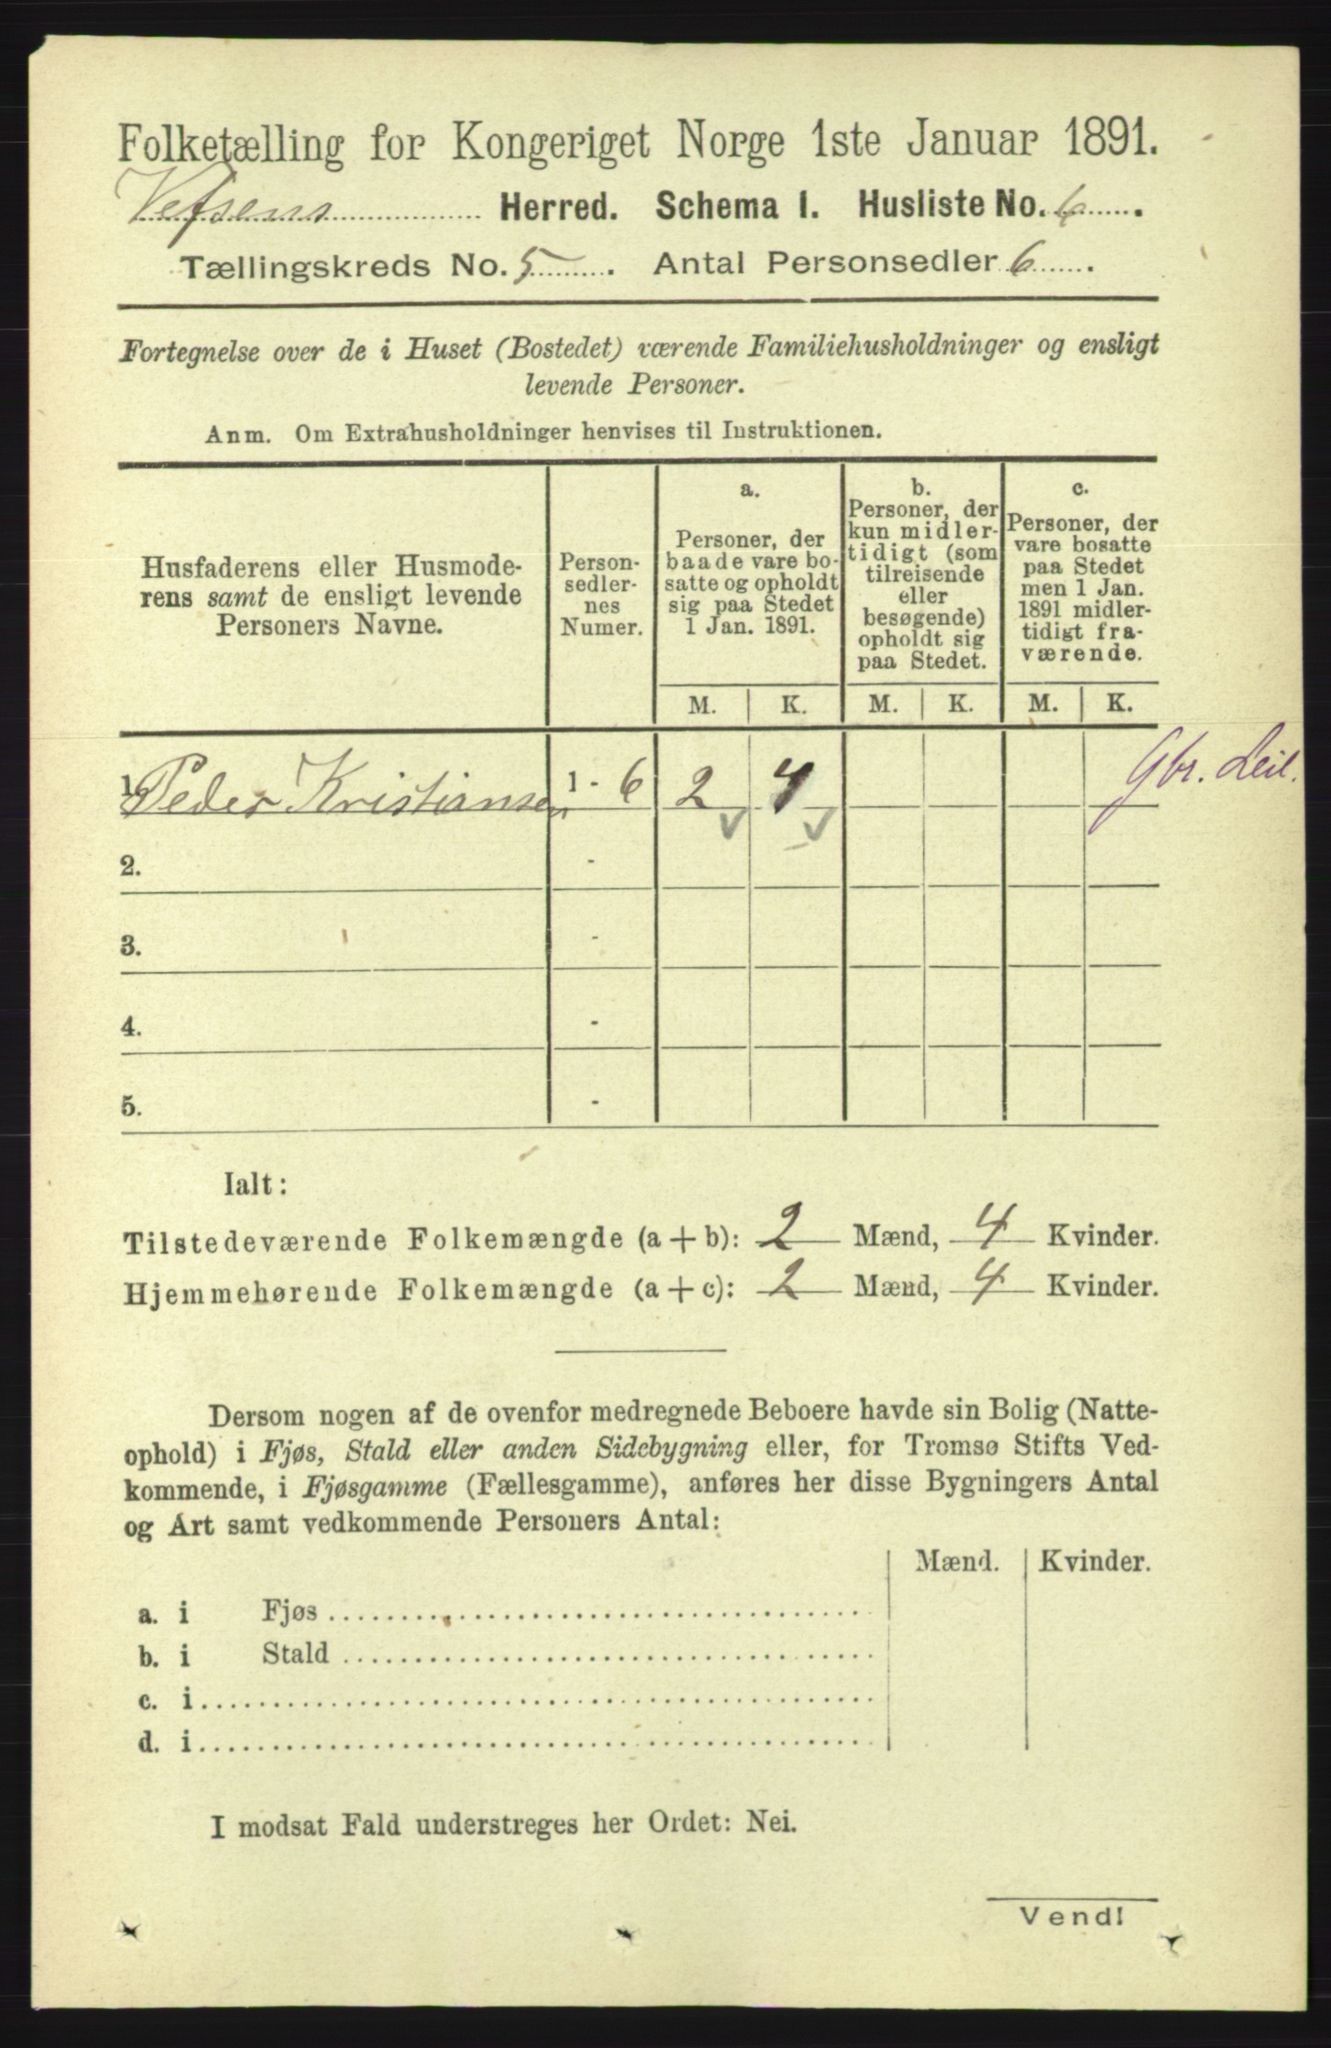 Folketælling for Kongeriget Norge 1ste Januar 1891.
Vefsens Herred. Schema I. Husliste No. 6.
Tællingskreds No. 5. Antal Personsedler 6.
Fortegnelse over de i Huset (Bostedet) værende Familiehusholdninger og ensligt
levende Personer.
Anm. Om Extrahusholdninger henvises til Instruktionen.
Husfaderens eller Husmode-
rens samt de ensligt levende
Personers Navne.
Person-
sedler-
nes
Numer.
a.
Personer, der
baade vare bo-
satte og opholdt
sig paa Stedet
1 Jan. 1891.
b.
Personer, der
kun midler-
tidigt (som
tilreisende
eller
besøgende)
opholdt sig
paa Stedet.
c.
Personer, der
vare bosatte
paa Stedet
men 1 Jan.
1891 midler-
tidigt fra-
værende.
M. K. M. K. M. K.
1. Peder Kristiansen 1 - 6 2 4 Gbr. Leil.
2. -
3. -
4. -
5. -
Ialt:
Tilstedeværende Folkemængde (a + b): 2 Mænd, 4 Kvinder.
Hjemmehørende Folkemængde (a + c): 2 Mænd, 4 Kvinder.
Dersom nogen af de ovenfor medregnede Beboere havde sin Bolig (Natte-
ophold) i Fjøs, Stald eller anden Sidebygning eller, for Tromsø Stifts Ved-
kommende, i Fjøsgamme (Fællesgamme), anføres her disse Bygningers Antal
og Art samt vedkommende Personers Antal:
Mænd. Kvinder.
a. i Fjøs
b. i Stald
c. i
d. i
I modsat Fald understreges her Ordet: Nei.
Vend!